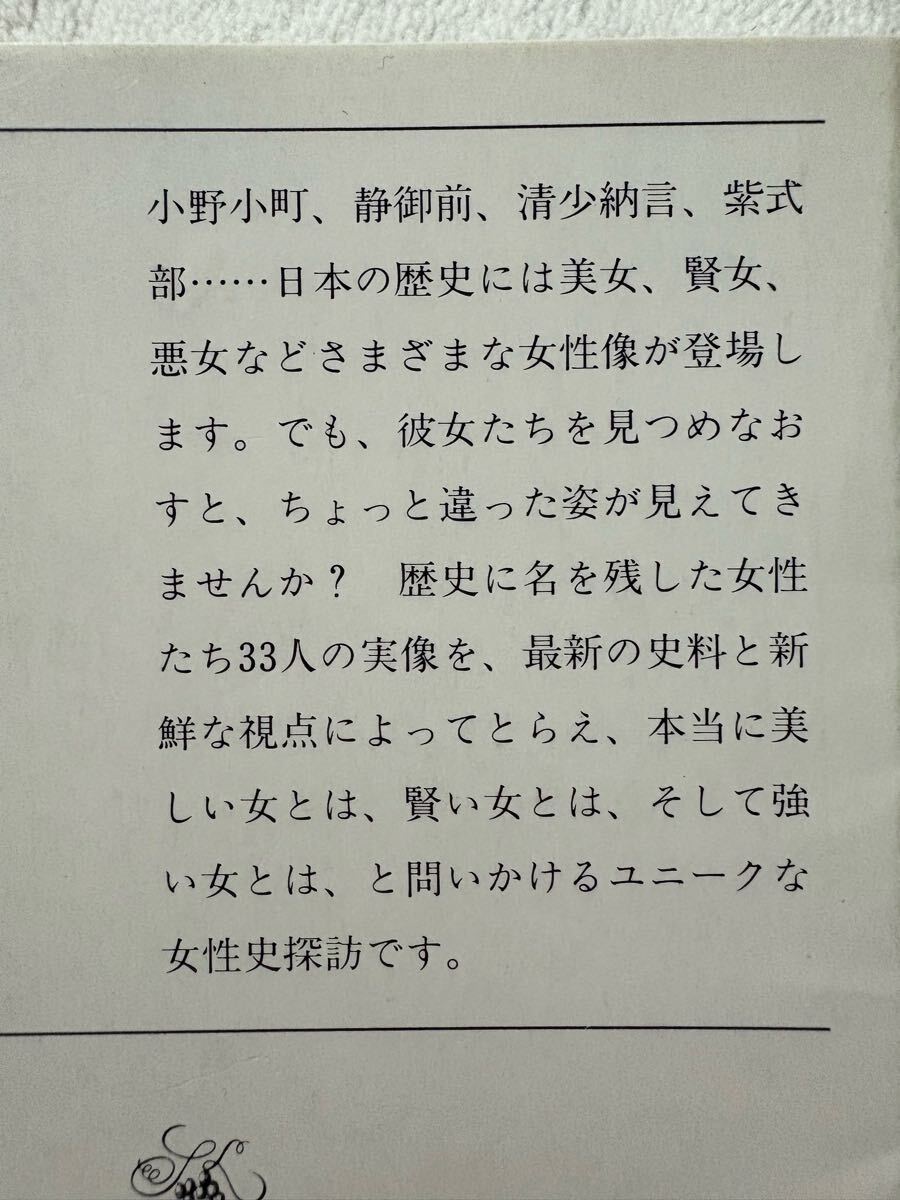 小野小町、静御前、清少納言、紫式
部……日本の歴史には美女、賢女、
悪女などさまざまな女性像が登場し
ます。でも、彼女たちを見つめなお
すと、ちょっと違った姿が見えてき
ませんか？　歴史に名を残した女性
たち33人の実像を、最新の史料と新
鮮な視点によってとらえ、本当に美
しい女とは、賢い女とは、そして強
い女とは、と問いかけるユニークな
女性史探訪です。